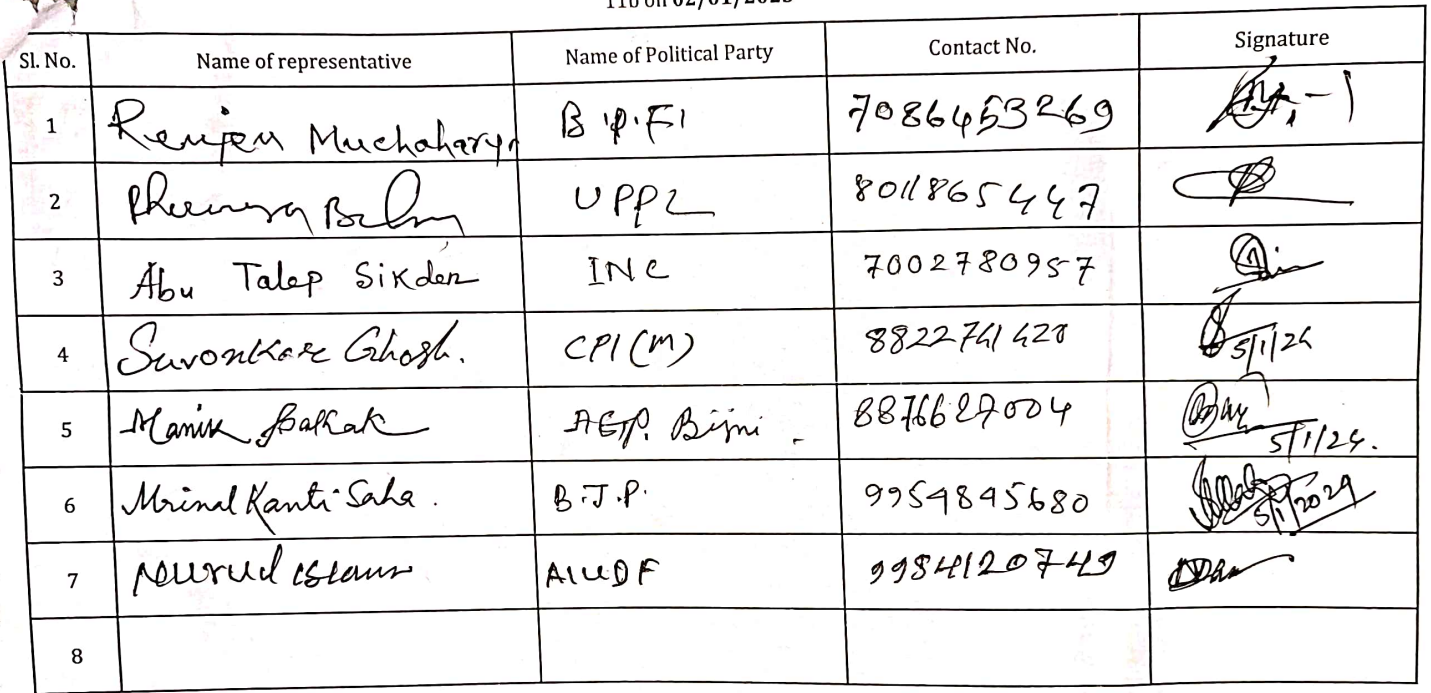 Sl. No. Name of representative Name of Political Party Contact No. Signature
1 Renjen Muchahary B.P.F 7086453269
2 UPPL 8011865447
3 Abu Talep Sikder INC 7002780957
4 Suvonkare Ghosh. CPI(M) 8822741420 5/1/24
5 Manik Pathak AGP. Bijni. 8876627004 5/1/24.
6 Mrinal Kanti Saha. B.J.P. 9954845680 5/1/2024
7 Nurul Islam AIUDF 9984120749
8